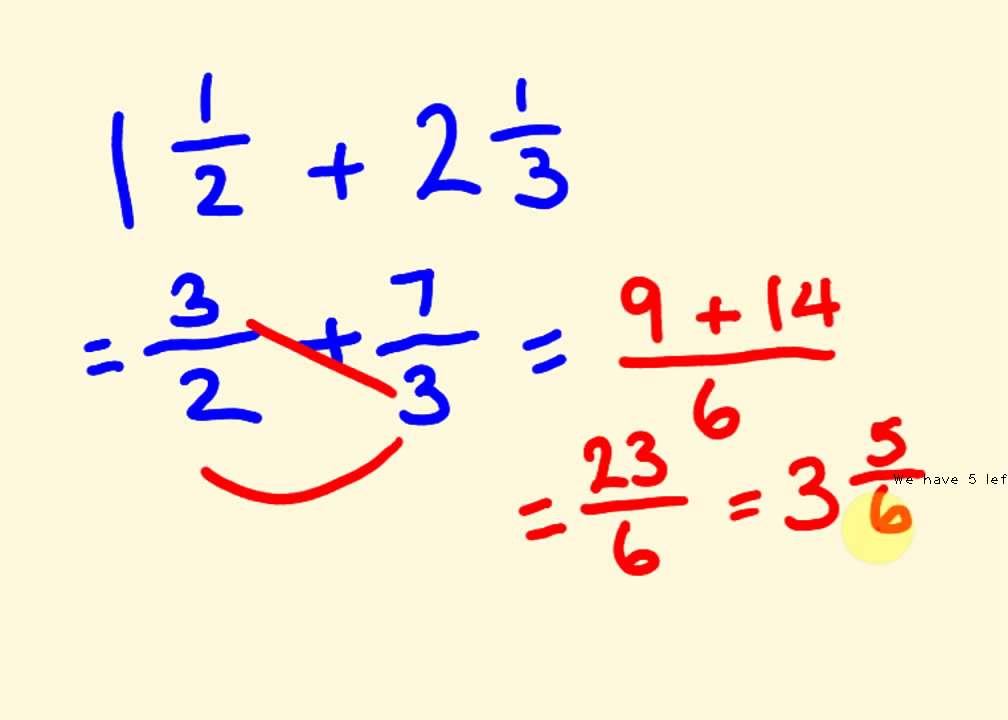 1 1/2 + 2 1/3
= 3/2 + 7/3 = (9 + 14)/6
= 23/6 = 3 5/6
We have 5 lef